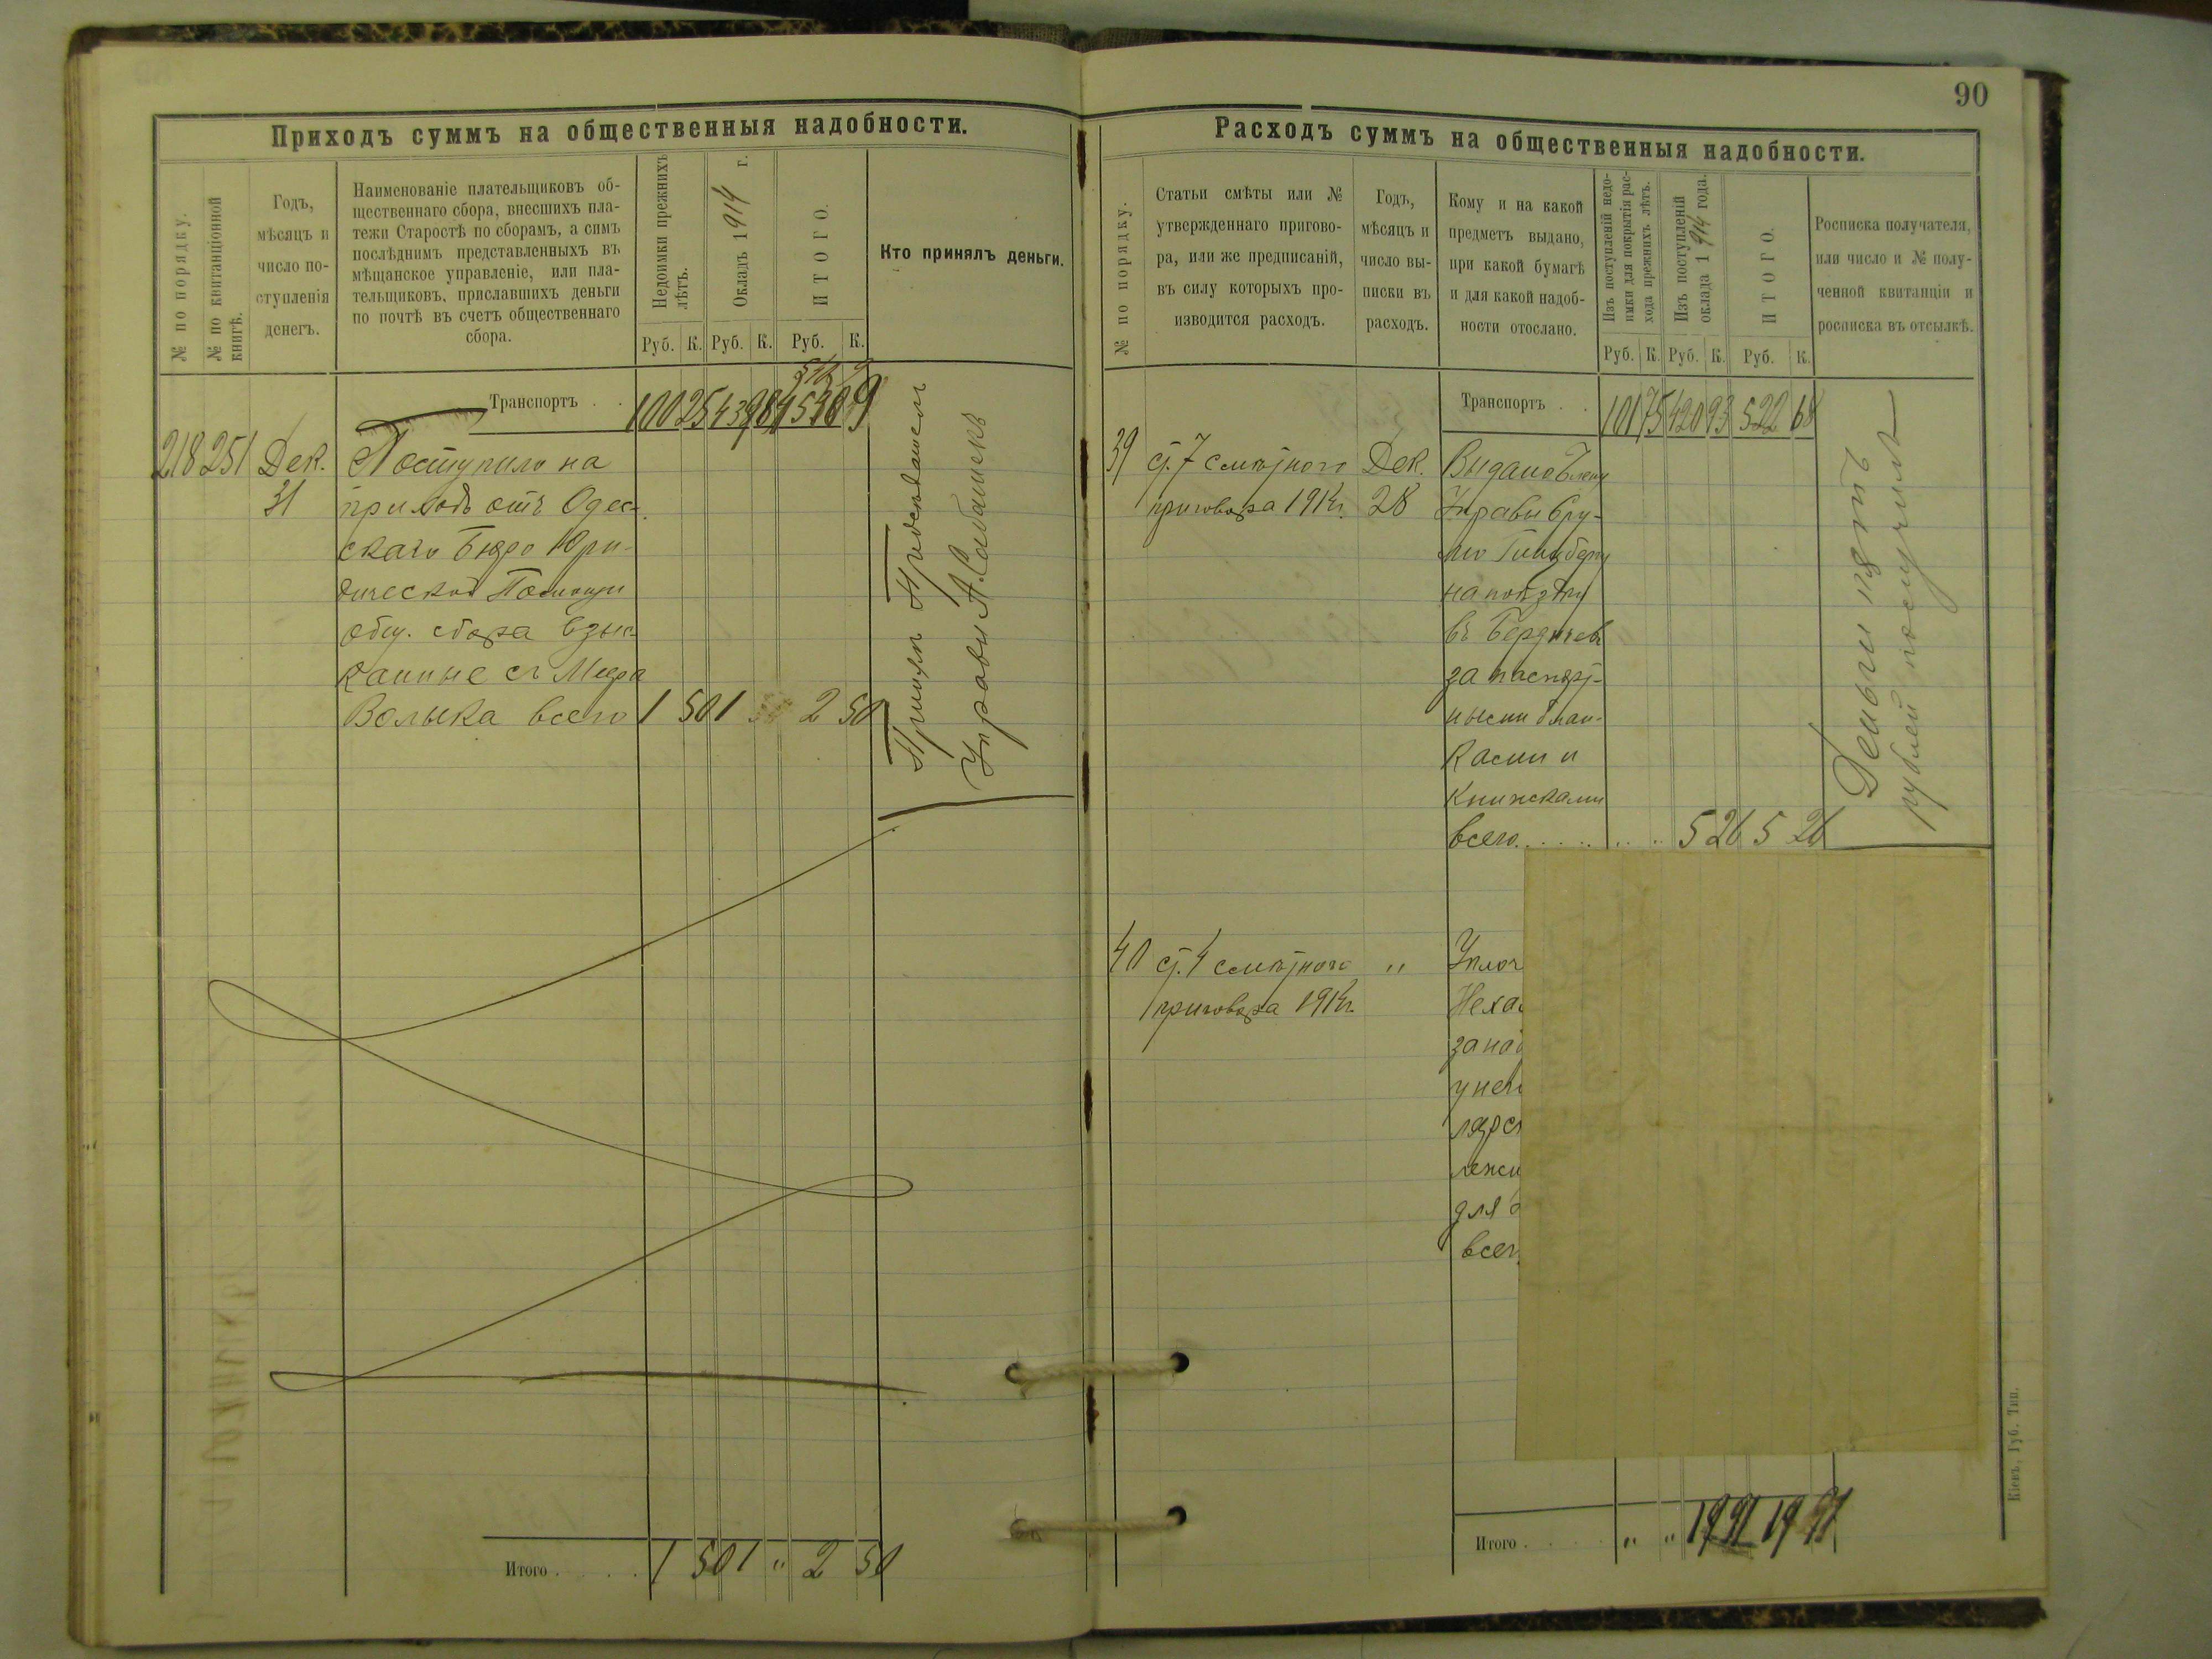 Приходъ суммъ на общественныя надобности.
№ по порядку.
№ по квитанціонной
книгѣ.
Годъ,
мѣсяцъ и
число по-
ступленія
денегъ.
Наименованіе плательщиковъ об-
щественнаго сбора, внесшихъ пла-
тежи Старостѣ по сборамъ, а симъ
послѣднимъ представленныхъ въ
мѣщанское управленіе, или пла-
тельщиковъ, приславшихъ деньги
по почтѣ въ счетъ общественнаго
сбора.
Недоимки прежнихъ
лѣтъ.
Окладъ 1914 г.
ИТОГО.
Кто принялъ деньги.
Руб. К. Руб. К. Руб. К.
Транспортъ . . 100 25 439 84
218 251 Дек. Поступило на
31 приходъ отъ Одес-
скаго Бюро Юри-
дической Помощи
общ. сбора взыс-
канные съ Меера
Волыка всего 1 50 1 2 50
Управы А.
Итого . . . . 1 50 1 „ 2 50
90
Расходъ суммъ на общественныя надобности.
№ по порядку.
Статьи смѣты или №
утвержденнаго пригово-
ра, или же предписаній,
въ силу которыхъ про-
изводится расходъ.
Годъ,
мѣсяцъ и
число вы-
писки въ
расходъ.
Кому и на какой
предметъ выдано,
при какой бумагѣ
и для какой надоб-
ности отослано.
Изъ поступленій недо-
имки для покрытія рас-
хода прежнихъ лѣтъ.
Изъ поступленій
оклада 1914 года.
ИТОГО.
Росписка получателя,
или число и № полу-
ченной квитанціи и
росписка въ отсылкѣ.
Руб. К. Руб. К. Руб. К.
Транспортъ . . 101 75 420 93 522 68
39 ст. 7 смѣтного Дек. Выдано Члену
приговора 1914г. 28 Управы Сру-
лю Гинзбергу
на поѣздку
въ Бердичевъ
за паспорт-
ными блан-
ками и
книжками
всего . . . . 5 26 5 26
Деньги пять
рублей получилъ
40 ст. 4 смѣтного „ Уплоч
приговора 1914г. Неха
за на
у него
ляре
лежи
для
всег
Итого . . . . „ „ 19 91 19 91
Кіевъ, Губ. Тип.